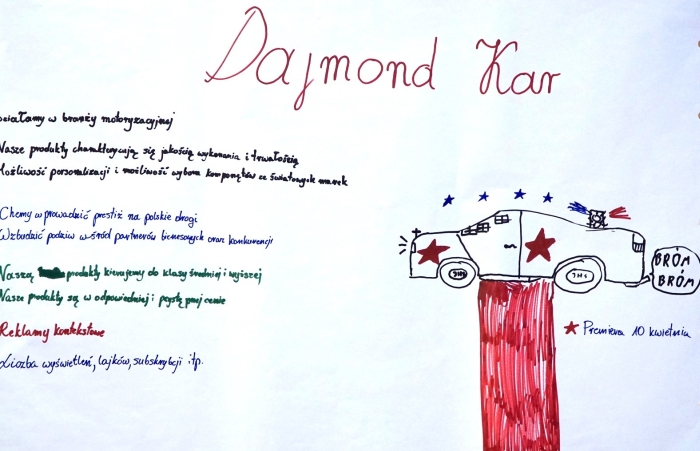 Dajmond Kar
działamy w branży motoryzacyjnej
Nasze produkty charakteryzują się jakością wykonania i trwałością
Możliwość personalizacji i możliwość wyboru komponętów ze światowych marek
Chcemy wprowadzić prestiż na polskie drogi
Wzbudzić podziw wśród partnerów biznesowych oraz konkurencji
Naszą produkty kierujemy do klasy średniej i wyższej
Nasze produkty są w odpowiedniej i cenie
Reklamy kontekstowe
Liczba wyświetleń, lajków, subskrybcji itp.
BRÓM
BRÓM
Premiera 10 kwietnia